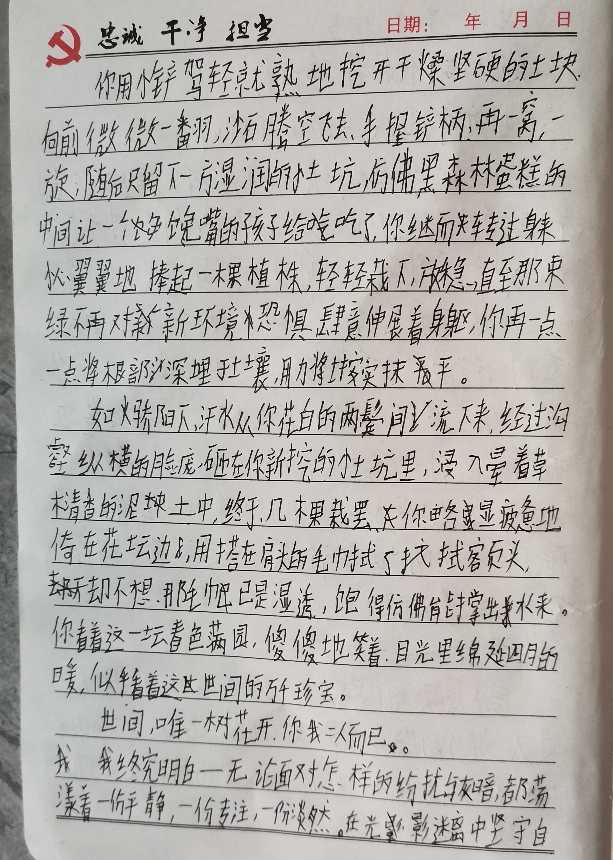 忠诚 干净 担当
日期: 年 月 日
你用小铲驾轻就熟地挖开干燥坚硬的土块,
向前微微一翻,沙石腾空飞去,手握铲柄,再一窝,一
旋,随后只留下一方湿润的小土坑,仿佛黑森林蛋糕的
中间让一个馋嘴的孩子给吃了,你继而转过身来
小心翼翼地捧起一棵植株,轻轻栽下,放稳,直至那束
绿不再对新环境恐惧,肆意伸展着身躯,你再一点
一点将根部深埋于土壤,用力将土按实抹平。
如火骄阳下,汗水从你花白的两鬓间流下来,经过沟
壑纵横的脸庞,砸在你新挖的小土坑里,浸入晕着草
木清香的泥土中,终于,几棵栽罢,你略显疲惫地
倚在花坛边,用搭在肩头的毛巾拭了拭额头,
却不想,那毛巾已是湿透,饱得仿佛能拧出水来。
你看着这一坛春色满园,傻傻地笑着,目光里绵延四月的
暖,似乎看着这世间的万千珍宝。
世间,唯一树花开,你我二人而已。
我 我终究明白一无论面对怎样的纷扰与灰暗,都荡
漾着一份平静,一份专注,一份淡然。在光影迷离中坚守自